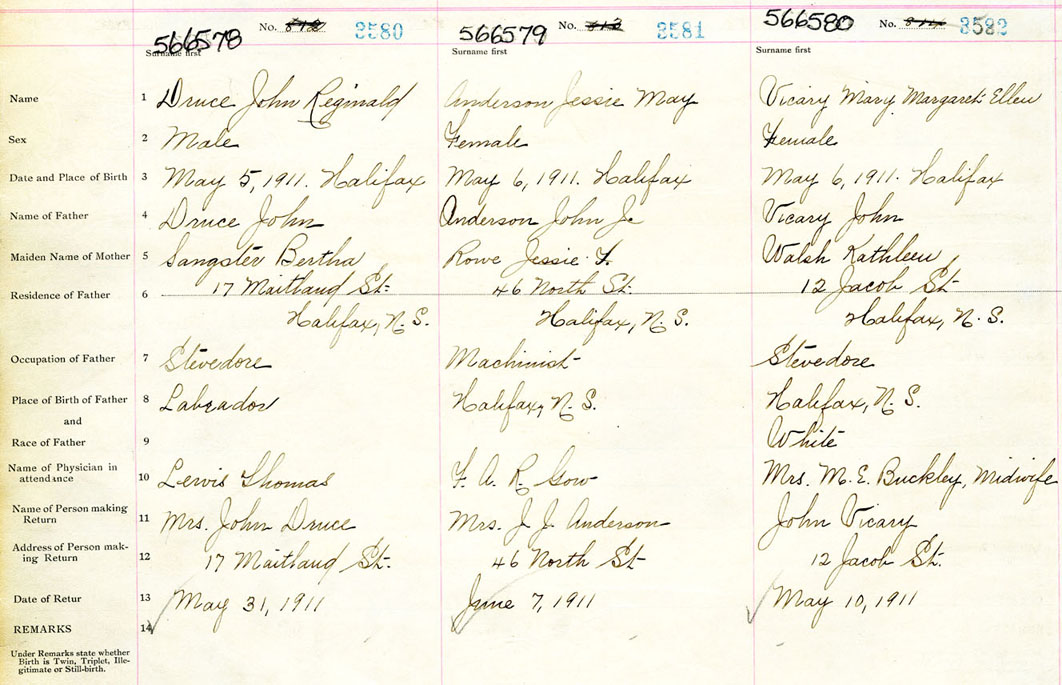 566578 No. 3580 566579 No. 3581 566580 No. 3582
Surname first Surname first Surname first
Name 1 Druce John Reginald Anderson Jessie May Vicary Mary Margaret Ellen
Sex 2 Male Female Female
Date and Place of Birth 3 May 5, 1911. Halifax May 6, 1911. Halifax May 6, 1911. Halifax
Name of Father 4 Druce John Anderson John J. Vicary John
Maiden Name of Mother 5 Sangster Bertha Rowe Jessie F. Walsh Kathleen
Residence of Father 6 17 Maitland St. 46 North St. 12 Jacob St.
Halifax, N.S. Halifax, N.S. Halifax, N.S.
Occupation of Father 7 Stevedore Machinist Stevedore
Place of Birth of Father 8 Labrador Halifax, N.S. Halifax, N.S.
and
Race of Father 9 White
Name of Physician in
attendance 10 Lewis Thomas F. A. R. Gow Mrs. M. E. Buckley, Midwife
Name of Person making
Return 11 Mrs. John Druce Mrs. J. J. Anderson John Vicary
Address of Person mak-
ing Return 12 17 Maitland St. 46 North St. 12 Jacob St.
Date of Retur 13 May 31, 1911 June 7, 1911 May 10, 1911
REMARKS 14
Under Remarks state whether
Birth is Twin, Triplet, Ille-
gitimate or Still-birth.